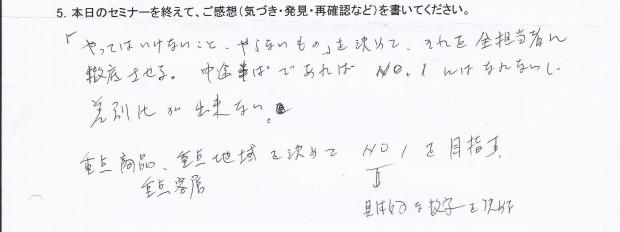 5. 本日のセミナーを終えて、ご感想（気づき・発見・再確認など）を書いてください。
「やってはいけないこと、やらないもの」を決めて、それを全担当者に
徹底させる。中途半ぱであれば NO.1 にはなれないし
差別化が出来ない。
重点商品、重点地域を決めて NO 1 を目指す
重点客層
⇓
具体的な数字を決める